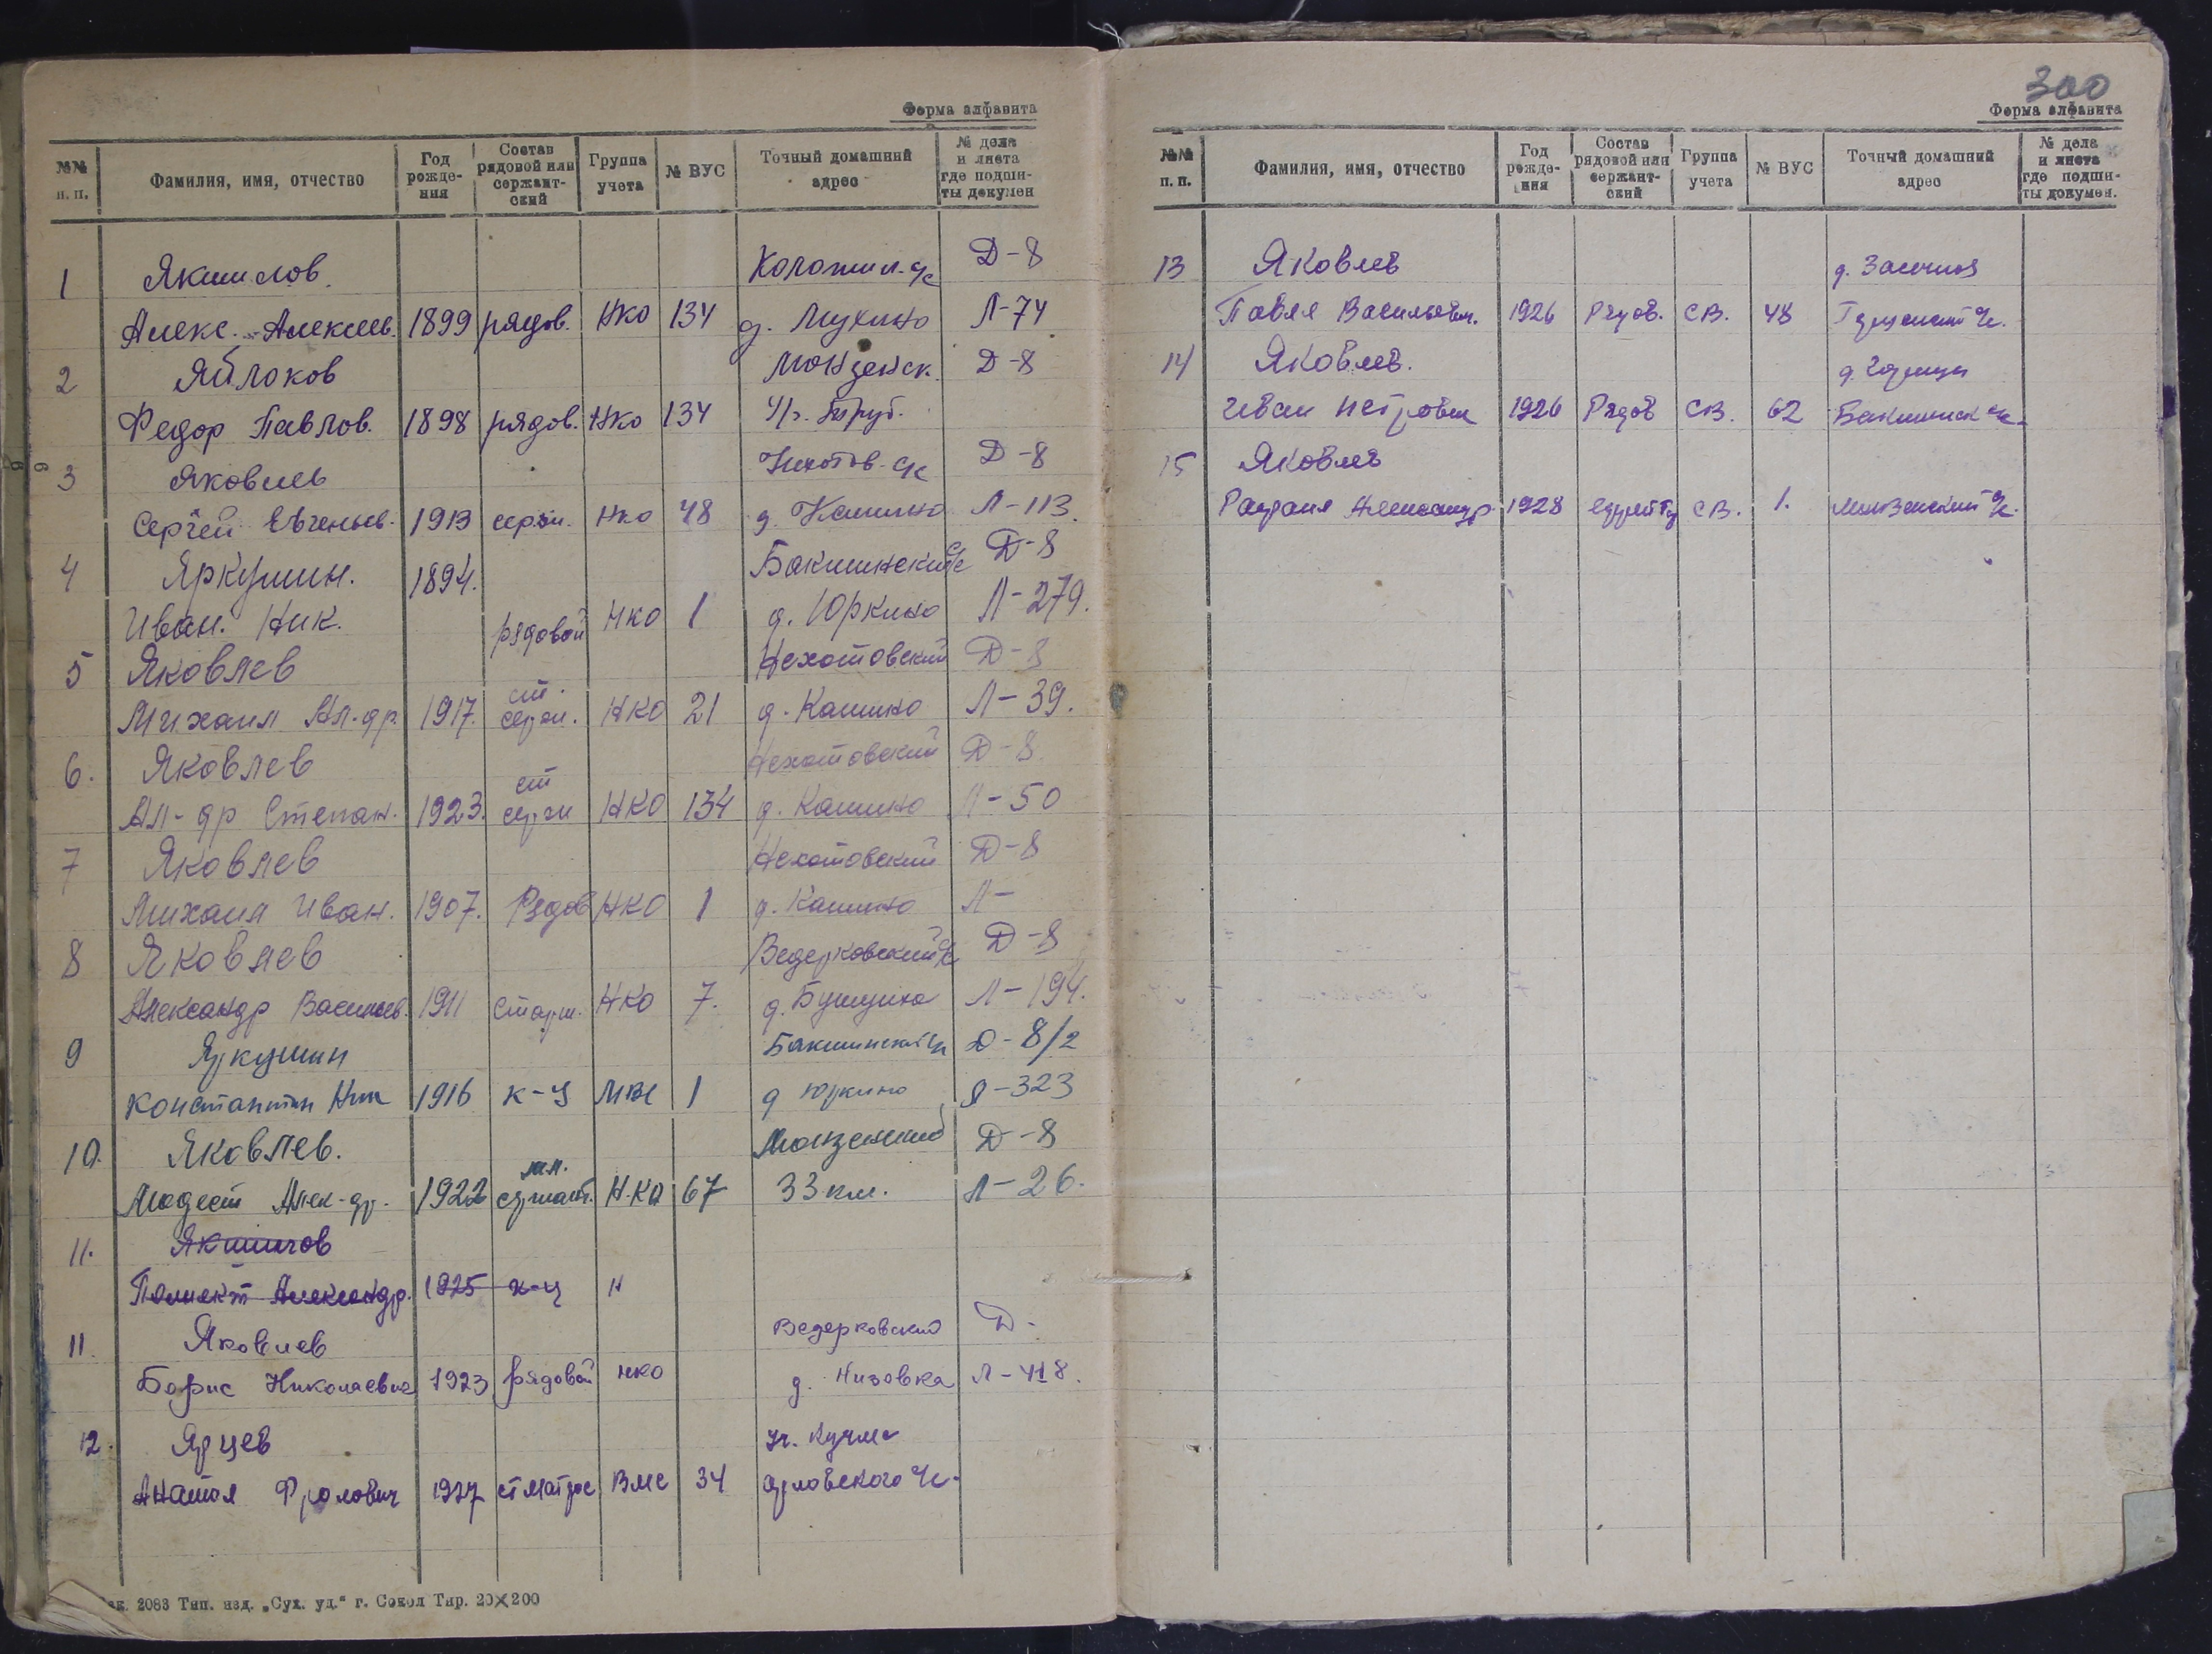 Форма алфавита
№№ п. п. Фамилия, имя, отчество Год рожде-ния Состав рядовой или сержант-ский Группа учета № ВУС Точный домашний адрес № дела и листа где подши-ты докумен
1 Якшилов. Д-8
Алекс. Алексеев. 1899 рядов. НКО 134 д. Мухино Л-74
2 Яблоков Монзенск. Д-8
Федор Павлов. 1898 рядов. НКО 134
3 Яковлев с/с Д-8
Сергей Евгеньев. 1913 серж. НКО 48 д. Кашино Л-113.
4 Яркушин. 1894. Бакшинский с/с Д-8
Иван. Ник. рядовой НКО 1 д. Юркино Л-279.
5 Яковлев Нехотовский Д-8
Михаил Ал-др. 1917. ст. серж. НКО 21 д. Кашино Л-39.
6. Яковлев Нехотовский Д-8.
Ал-др Степан. 1923. ст серж НКО 134 д. Кашино Л-50
7 Яковлев Нехотовский Д-8
Михаил Иван. 1907. Рядов НКО 1 д. Кашино Л-
8 Яковлев Ведерковский с/с Д-8
Александр Васильев. 1911 Старш. НКО 7. д. Л-194.
9 Яркушин Бакшинский с/с Д-8/2
Константин Ник 1916 к-ц 1 д Юркино Л-323
10. Яковлев. Монзенский Д-8
Модест Алек-др. 1922 мл. сержант. Н.КО 67 33 км. Л-26.
11. Якшилов
Александр. 1925 к-ц Н
11. Яковлев Ведерковский Д-
Борис Николаевич 1923 рядовой НКО д. Низовка Л-418.
12. Ярцев уч. Кучма
Анатол Фролович 1927 ст матрос ВМС 34 с/с.
Зак. 2083 Тип. изд. „Сух. уд.“ г. Сокол Тир. 20×200
300
Форма алфавита
№№ п. п. Фамилия, имя, отчество Год рожде-ния Состав рядовой или сержант-ский Группа учета № ВУС Точный домашний адрес № дела и листа где подши-ты докумен.
13 Яковлев д.
Павел Васильевич. 1926 Рядов. СВ. 48 с/с.
14 Яковлев. д.
Иван Петрович 1926 Рядов СВ. 62 Бакшинск с/с.
15 Яковлев
Александр. 1928 СВ. 1. Монзенский с/с.